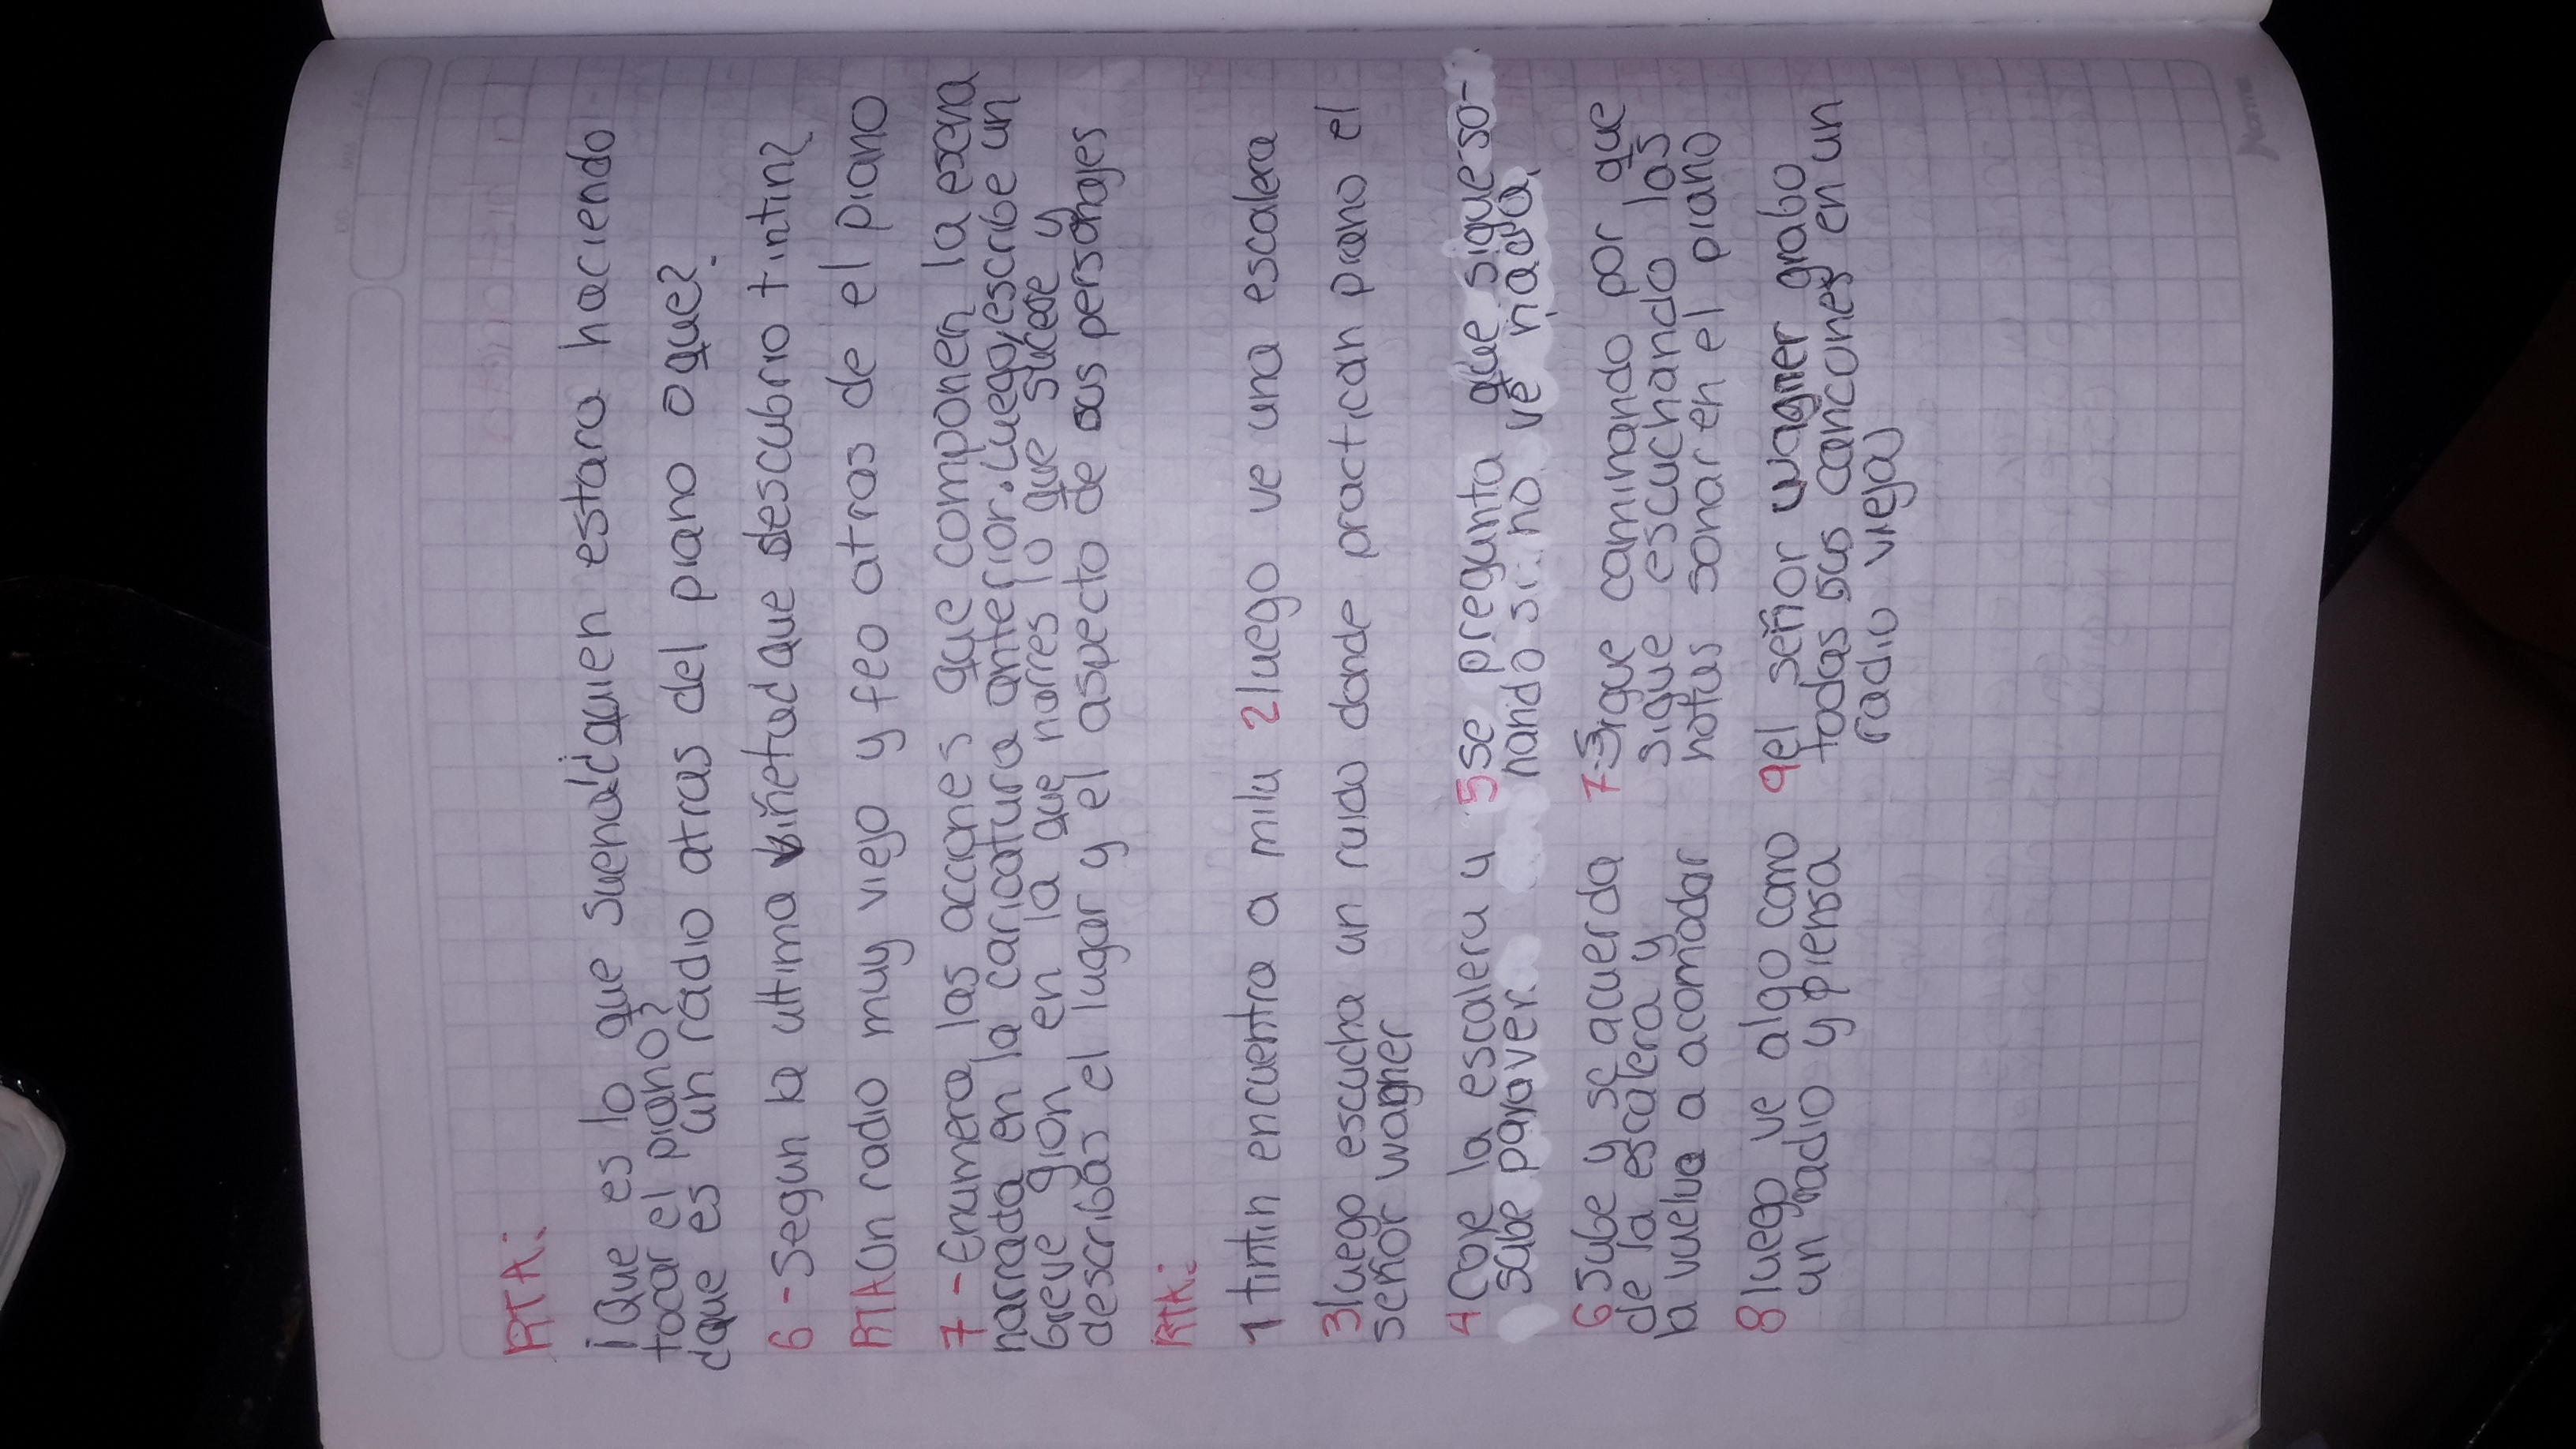 RTA:
¡Que es lo que suena!¿quien estara haciendo
tocar el piano?
¿que es un radio atras del piano o que?
6-Segun la ultima viñeta¿que descubrio tintin?
RTA Un radio muy viejo y feo atras de el piano
7-Enumera las acciones que componen la escena
narrada en la caricatura anterior. Luego, escribe un
breve gion en la que narres lo que sucede y
describas el lugar y el aspecto de sus personajes
RTA:
1 tintin encuentra a milu 2 luego ve una escalera
3 luego escucha un ruido donde practican piano el
señor wagner
4 Coje la escalera y 5 se pregunta que sigue so-
sube para ver nando si no ve nada,
6 Sube y se acuerda 7-Sigue caminando por que
de la escalera y sigue escuchando las
la vuelve a acomodar notas sonar en el piano
8 luego ve algo como 9 el señor wagner grabo
un radio y piensa todas sus canciones en un
radio viejo
Norma